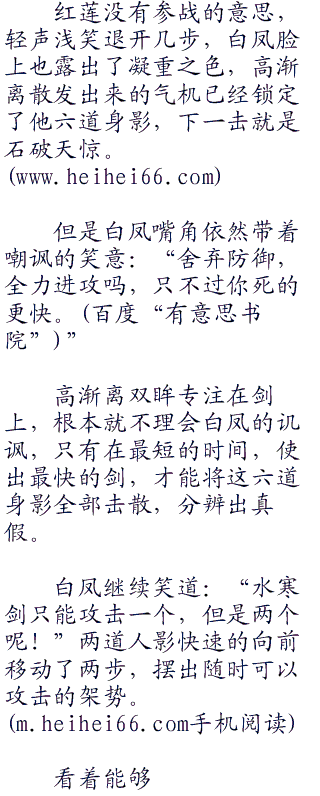 红莲没有参战的意思，
轻声浅笑退开几步，白凤脸
上也露出了凝重之色，高渐
离散发出来的气机已经锁定
了他六道身影，下一击就是
石破天惊。
(www.heihei66.com)
但是白凤嘴角依然带着
嘲讽的笑意：“舍弃防御，
全力进攻吗，只不过你死的
更快。(百度“有意思书
院”)”
高渐离双眸专注在剑
上，根本就不理会白凤的讥
讽，只有在最短的时间，使
出最快的剑，才能将这六道
身影全部击散，分辨出真
假。
白凤继续笑道：“水寒
剑只能攻击一个，但是两个
呢！”两道人影快速的向前
移动了两步，摆出随时可以
攻击的架势。
(m.heihei66.com手机阅读)
看着能够